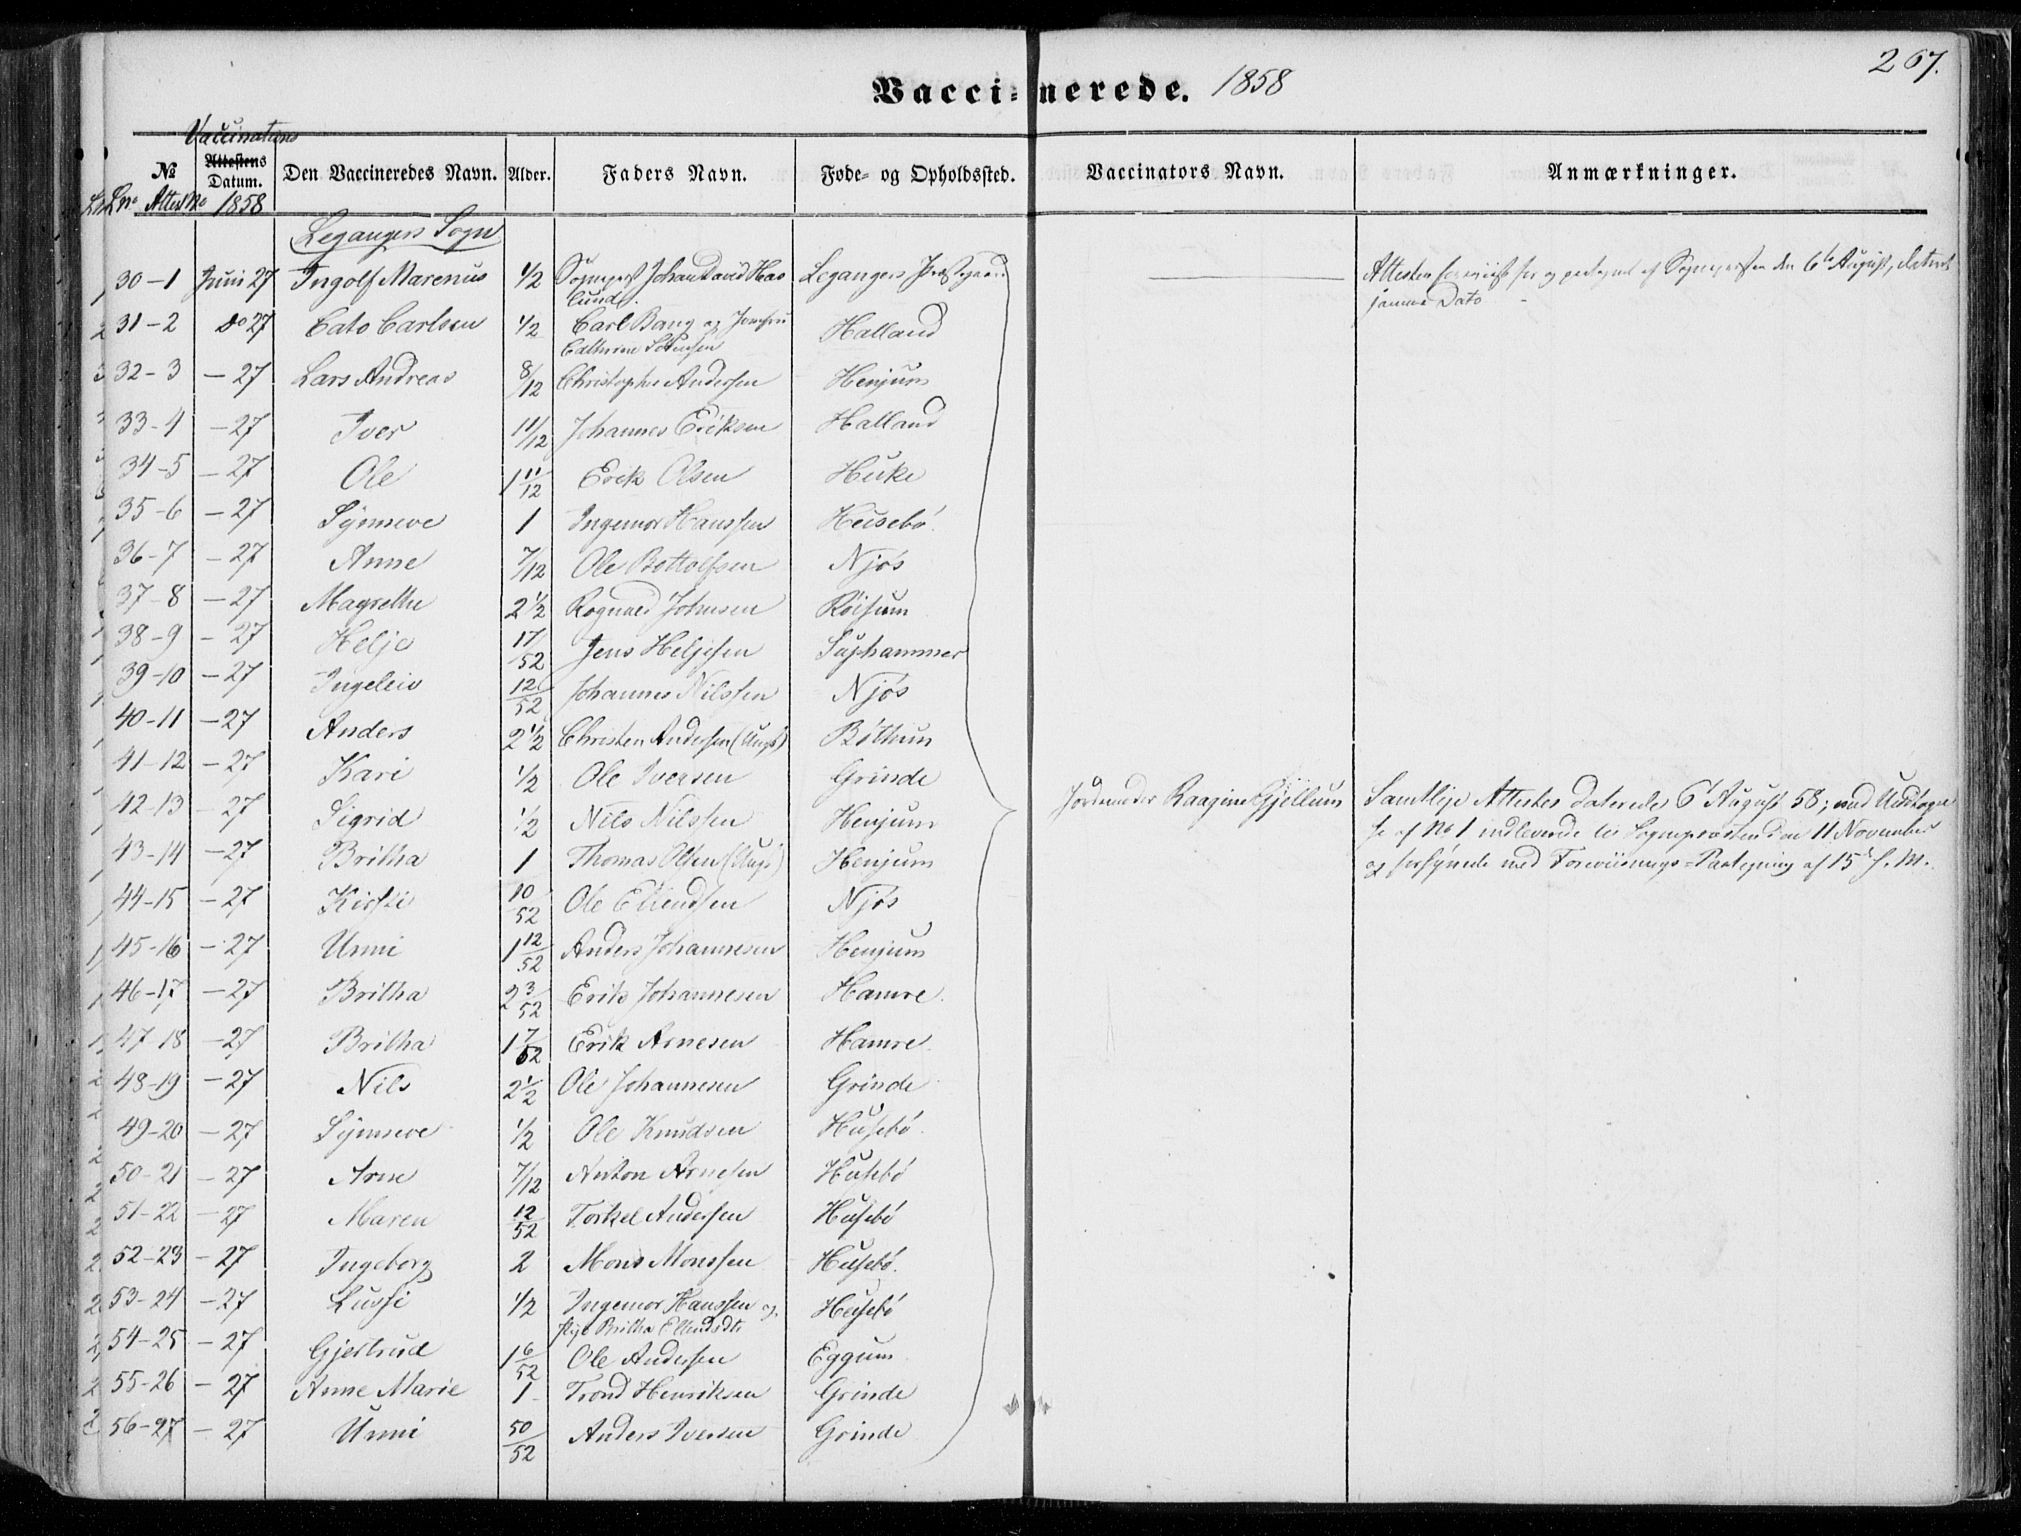 267.
Vaccinerede. 1858
Vaccinations
№ Attestens Datum. Den Vaccineredes Navn. Alder. Faders Navn. Føde- og Opholdssted. Vaccinators Navn. Anmærkninger.
Lno Attest No 1858
Leganger Sogn
30-1 Juni 27 Ingolf Marenus 1/2 Sogneprst Johan David Has Leganger Præstegaard Attesten den 6te August, dateret
lund. samme Dato
31-2 do 27 Cato Carlsen 1/2 Carl Bang og Jomfru Halland
Cathrine Sørensen
32-3 - 27 Lars Andreas 8/12 Christopher Andersen Henjum
33-4 - 27 Iver 11/12 Johannes Eriksen Halland
34-5 - 27 Ole 1 11/12 Erik Olsen Huke
35-6 - 27 Synneve 1 Ingemor Hanssen Husebø
36-7 - 27 Anne 7/12 Ole Bottolfsen Njøs
37-8 - 27 Magrethe 2 1/2 Rognald Johnsen Røisum
38-9 - 27 Helje 17/52 Jens Heljesen Suphammer
39-10 - 27 Ingeleiv 12/52 Johannes Nilssen Njøs
40-11 - 27 Anders 2 1/2 Christen Andersen (Ungk) Bøthun
41-12 - 27 Kari 1/2 Ole Iversen Grinde
42-13 - 27 Sigrid 1/2 Nils Nilssen Henjum Jordmoder Raagine Gjellum Samtlige Attester daterede 6t August 58; med Undtagel
se af No 1 indleverede til Sognepræsten den 11 November
43-14 - 27 Britha 1 Thomas Olsen (Ungk) Henjum og forsynede med Foreviisnings-Paategning af 15de f. M.
44-15 - 27 Kirsti 10/52 Ole Ellendsen Njøs
45-16 - 27 Unni 1 12/52 Anders Johannesen Henjum
46-17 - 27 Britha 2 3/52 Erik Johannesen Hamre.
47-18 - 27 Britha 1 7/52 Erik Arnesen Hamre.
48-19 - 27 Nils 2 1/2 Ole Johannesen Grinde
49-20 - 27 Synneve 1/2 Ole Knudsen Husebø.
50-21 - 27 Arne 7/12 Anton Arnesen Husebø
51-22 - 27 Maren 12/52 Torkel Andersen Husebø
52-23 - 27 Ingeborg 2 Mons Monssen Husebø.
53-24 - 27 Lussi 1/2 Ingemor Hanssen og Husebø
Pige Britha Ellendsdtr
54-25 - 27 Gjertrud 1 6/52 Ole Andersen Eggum
55-26 - 27 Anne Marie 1 Trond Henriksen Grinde
56-27 - 27 Unni 50/52 Anders Iversen Grinde